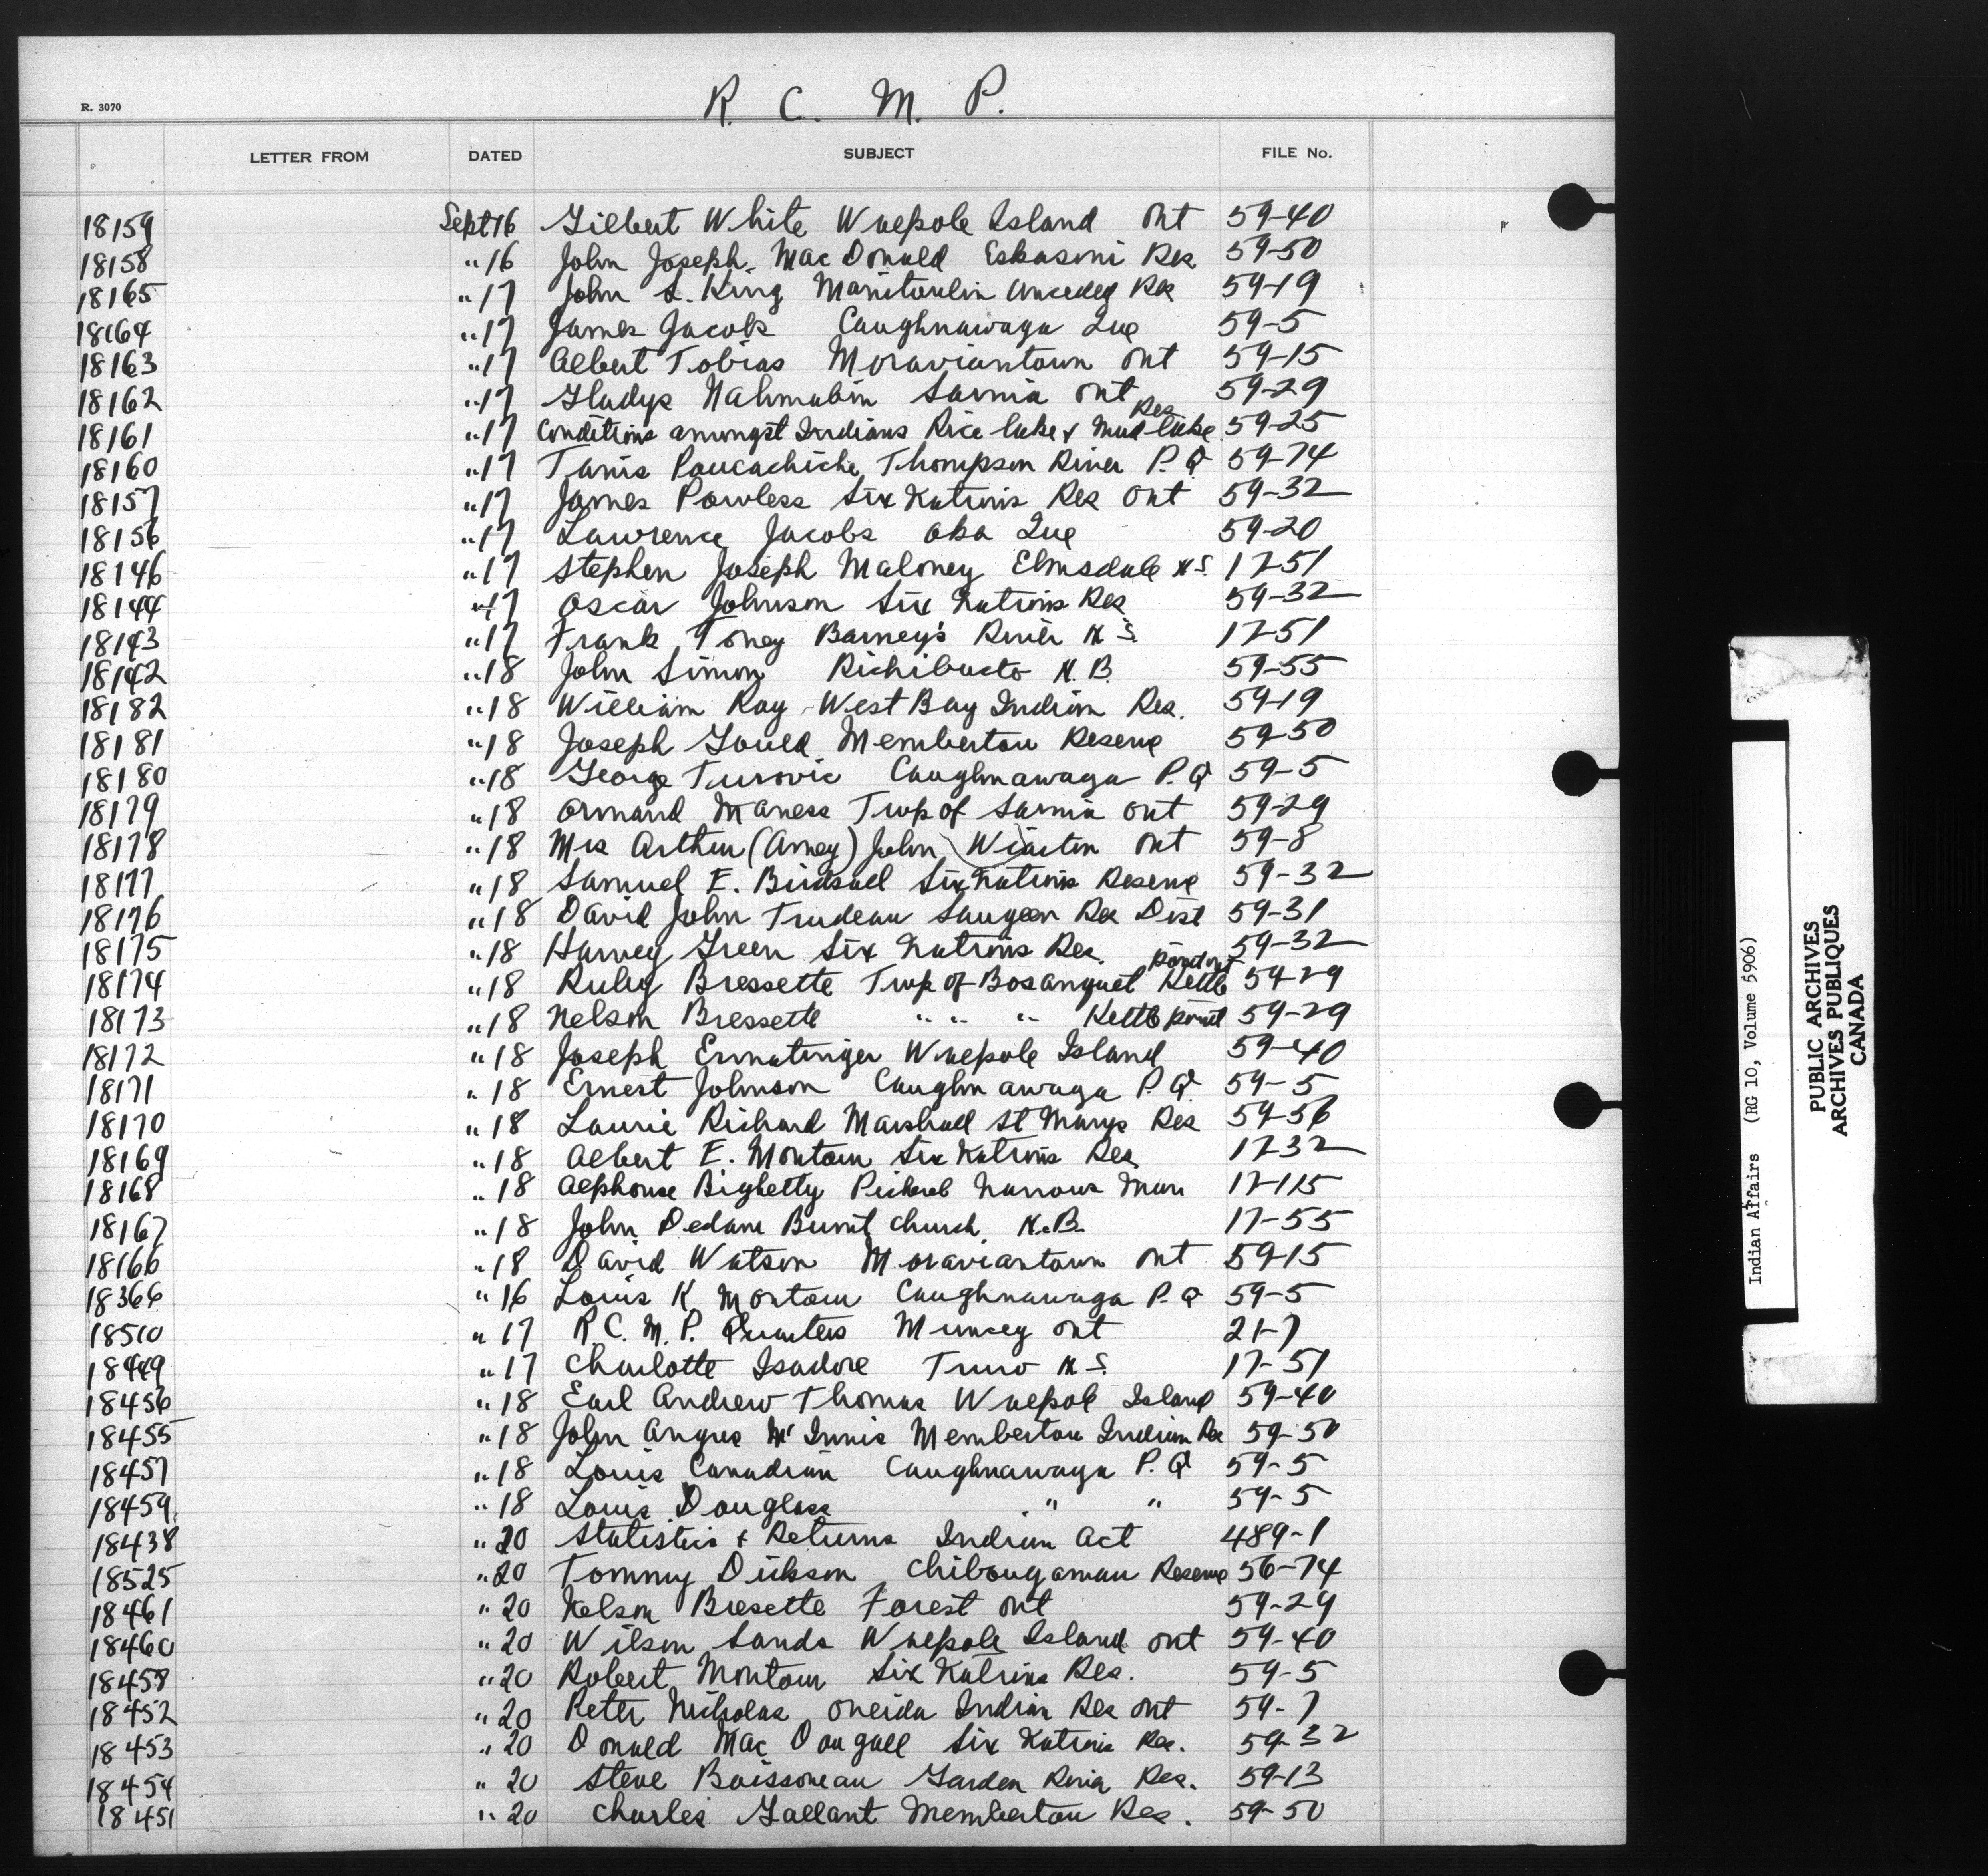 R. 3070
R. C. M. P.
LETTER FROM DATED SUBJECT FILE No.
18159 Sept 16 Gilbert White Walpole Island Ont 59-40
18158 " 16 John Joseph MacDonald Eskasoni Res 59-50
18165 " 17 John S. King Manitoulin Unceded Res 59-19
18164 " 17 James Jacobs Caughnawaga Que 59-5
18163 " 17 Albert Tobias Moraviantown Ont 59-15
18162 " 17 Gladys Nahmabin Sarnia Ont 59-29
18161 " 17 Conditions amongst Indians Rice Lake & Mud Lake Res 59-25
18160 " 17 Thompson River P.Q 59-74
18157 " 17 James Powless Six Nations Res Ont 59-32
18156 " 17 Lawrence Jacobs Oka Que 59-20
18146 " 17 Stephen Joseph Maloney Elmsdale N.S. 17-51
18144 " 17 Oscar Johnson Six Nations Res 59-32
18143 " 17 Frank Toney Barney's River N S. 17-51
18142 " 18 John Simon Richibucto N.B. 59-55
18182 " 18 William Roy West Bay Indian Res. 59-19
18181 " 18 Joseph Gould Membertou Reserve 59-50
18180 " 18 George Caughnawaga P.Q 59-5
18179 " 18 Ormand Maness Twp of Sarnia Ont 59-29
18178 " 18 Mrs Arthur (Amey) John Wiarton Ont 59-8
18177 " 18 Samuel E. Birdsall Six Nations Reserve 59-32
18176 " 18 David John Trudeau Saugeen Res Dist 59-31
18175 " 18 Harvey Green Six Nations Res. 59-32
18174 " 18 Ruby Bressette Twp of Bosanquet Kettle Point Ont 59-29
18173 " 18 Nelson Bressette " " " Kettle Point 59-29
18172 " 18 Joseph Ermatinger Walpole Island 59-40
18171 " 18 Ernest Johnson Caughnawaga P.Q. 59-5
18170 " 18 Laurie Richard Marshall St Marys Res 59-56
18169 " 18 Albert E. Montour Six Nations Res 17-32
18168 " 18 Alphonse Bighetty Pickerel Narrows Man 17-115
18167 " 18 John Dedam Burnt Church. N.B. 17-55
18166 " 18 David Watson Moraviantown Ont 59-15
18366 " 16 Louis K Montour Caughnawaga P.Q 59-5
18510 " 17 R.C.M.P. Quarters Muncey Ont 21-7
18449 " 17 Charlotte Isadore Truro N S. 17-51
18456 " 18 Earl Andrew Thomas Walpole Island 59-40
18455 " 18 John Angus McInnis Membertou Indian Res 59-50
18457 " 18 Louis Canadian Caughnawaga P.Q 59-5
18459 " 18 Louis Douglass " " 59-5
18438 " 20 Statistics & Returns Indian Act 489-1
18525 " 20 Tommy Dikson Chibougamau Reserve 56-74
18461 " 20 Nelson Bresette Forest Ont 59-29
18460 " 20 Wilson Sands Walpole Island Ont 59-40
18458 " 20 Robert Montour Six Nations Res. 59-5
18452 " 20 Peter Nicholas Oneida Indian Res Ont 59-7
18453 " 20 Donald MacDougall Six Nations Res. 59-32
18454 " 20 Steve Boissoneau Garden River Res. 59-13
18451 " 20 Charles Gallant Membertou Res. 59-50
Indian Affairs (RG 10, Volume 5906)
PUBLIC ARCHIVES
ARCHIVES PUBLIQUES
CANADA